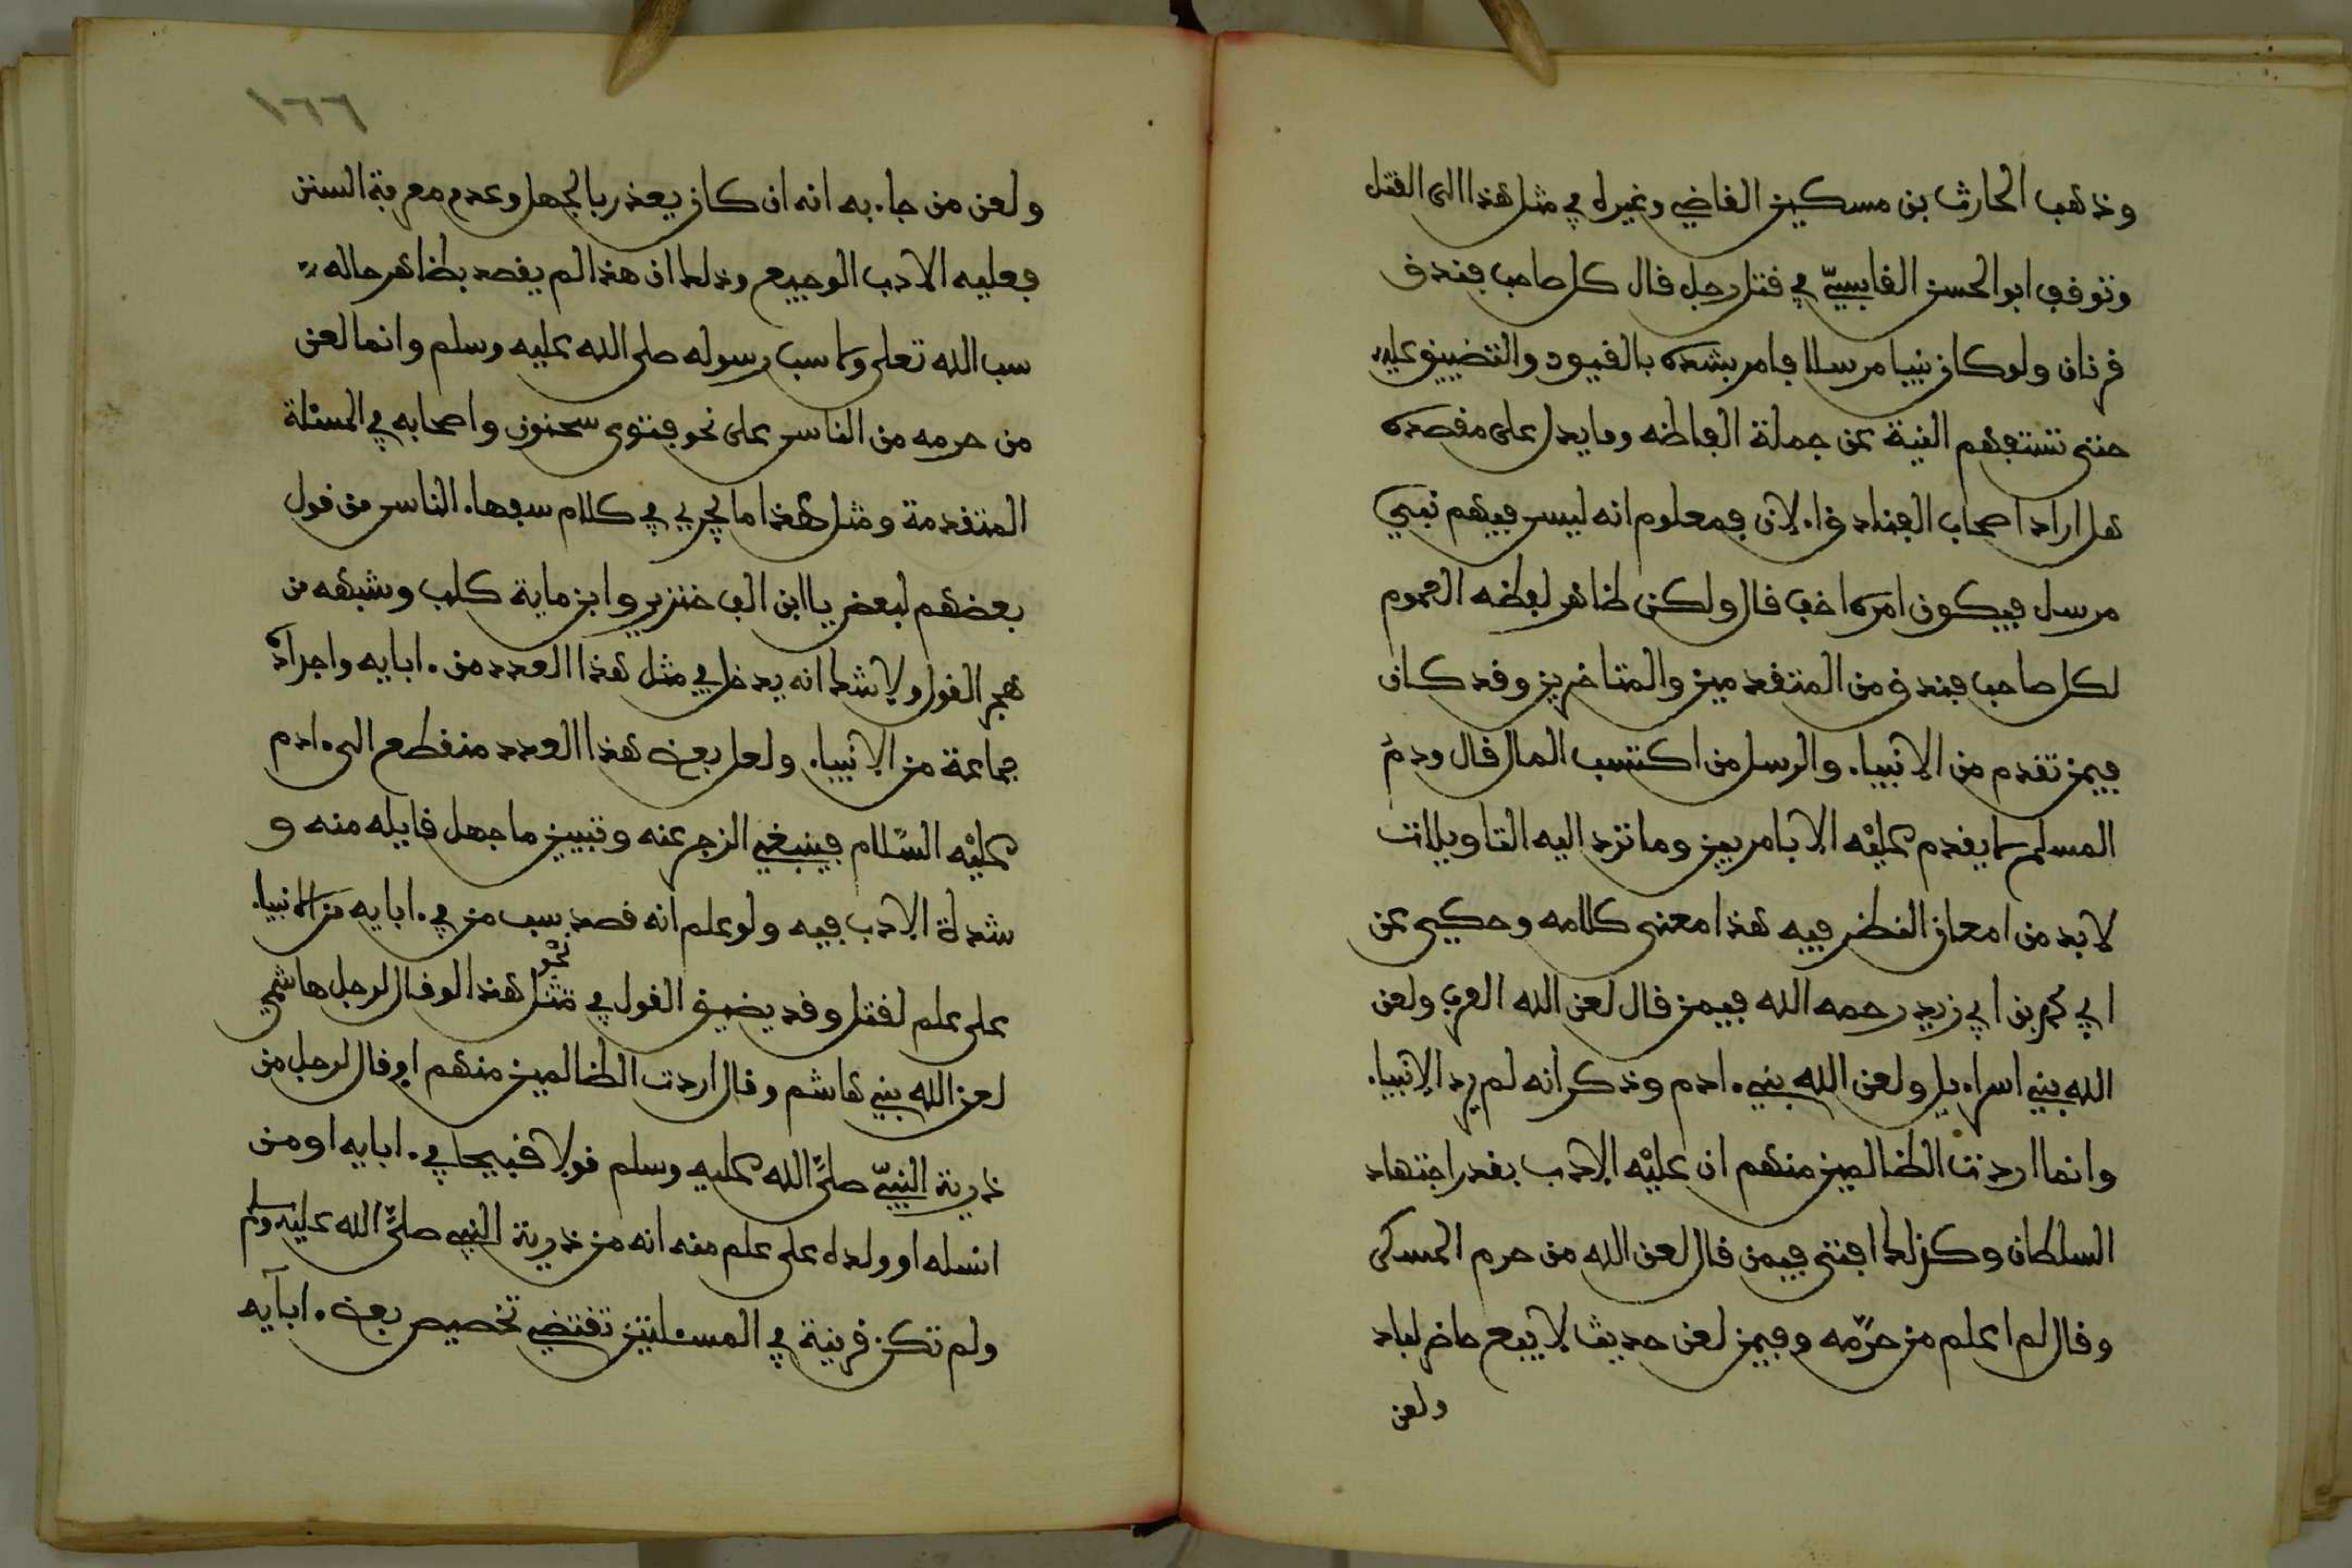 وذهب الحارث بن مسكين القاضي وغيره في مثل هذا الى القتل
وتوقف ابو الحسن القابسيّ في قتل رجل قال كل صاحب فندق
قرنان ولو كان نبيا مرسلا فامر بشده بالقيود والتضييق عليه
حتى تستفهم البينة عن جملة الفاظه وما يدل على مقصده
هل اراد اصحاب الفنادق الان فمعلوم انه ليس فيهم نبي
مرسل فيكون امره اخف قال ولكن ظاهر لفظه العموم
لكل صاحب فندق من المتقدمين والمتاخرين وقد كان
فيمن تقدم من الانبياء والرسل من اكتسب المال قال ودم
المسلم لا يقدم عليه الا بامر بين وما ترد اليه التاويلات
لا بد من امعان النظر فيه هذا معنى كلامه وحكي عن
ابي محمد بن ابي زيد رحمه الله فيمن قال لعن الله العرب ولعن
الله بني اسراءيل ولعن الله بني ءادم وذكر انه لم يرد الانبياء
وانما اردت الظالمين منهم ان عليه الادب بقدر اجتهاد
السلطان وكذلك افتى فيمن قال لعن الله من حرم المسكر
وقال لم اعلم من حرّمه وفيمن لعن حديث لا يبع حاضر لباد
ولعن
١٦٦
ولعن من جاء به انه ان كان يعذر بالجهل وعدم معرفة السنن
فعليه الادب الوجيع وذلك ان هذا لم يقصد بظاهر حاله
سب الله تعلى ولا سب رسوله صلى الله عليه وسلم وانما لعن
من حرمه من الناس على نحو فتوى سحنون واصحابه في المسئلة
المتقدمة ومثل هذا ما يجري في كلام سفهاء الناس من قول
بعضهم لبعض يا ابن الف خنزير وابن ماية كلب وشبهه من
هجر القول ولا شك انه يدخل في مثل هذا العدد من ءابايه واجداده
جماعة من الانبياء ولعل بعض هذا العدد منقطع الى ءادم
عليه السّلام فينبغي الزجر عنه وتبيين ما جهل قايله منه و
شدة الادب فيه ولو علم انه قصد سب من في ءابايه من الانبياء
على علم لقتل وقد يضيق القول في نحو مثل هذا لو قال لرجل هاشمي
لعن الله بني هاشم وقال اردت الظالمين منهم او قال لرجل من
ذرية النبيّ صلّى الله عليه وسلم قولا قبيحا في ءابايه او من
نسله او ولده على علم منه انه من ذرية النبي صلّى الله عليه وسلم
ولم تكن قرينة في المسئلتين تقتضي تخصيص بعض ءابآيه